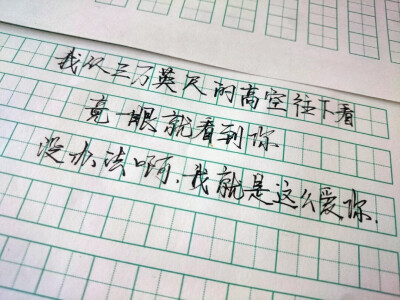 我从三万英尺的高空往下看
竟一眼就看到你
没办法啊,我就是这么爱你.